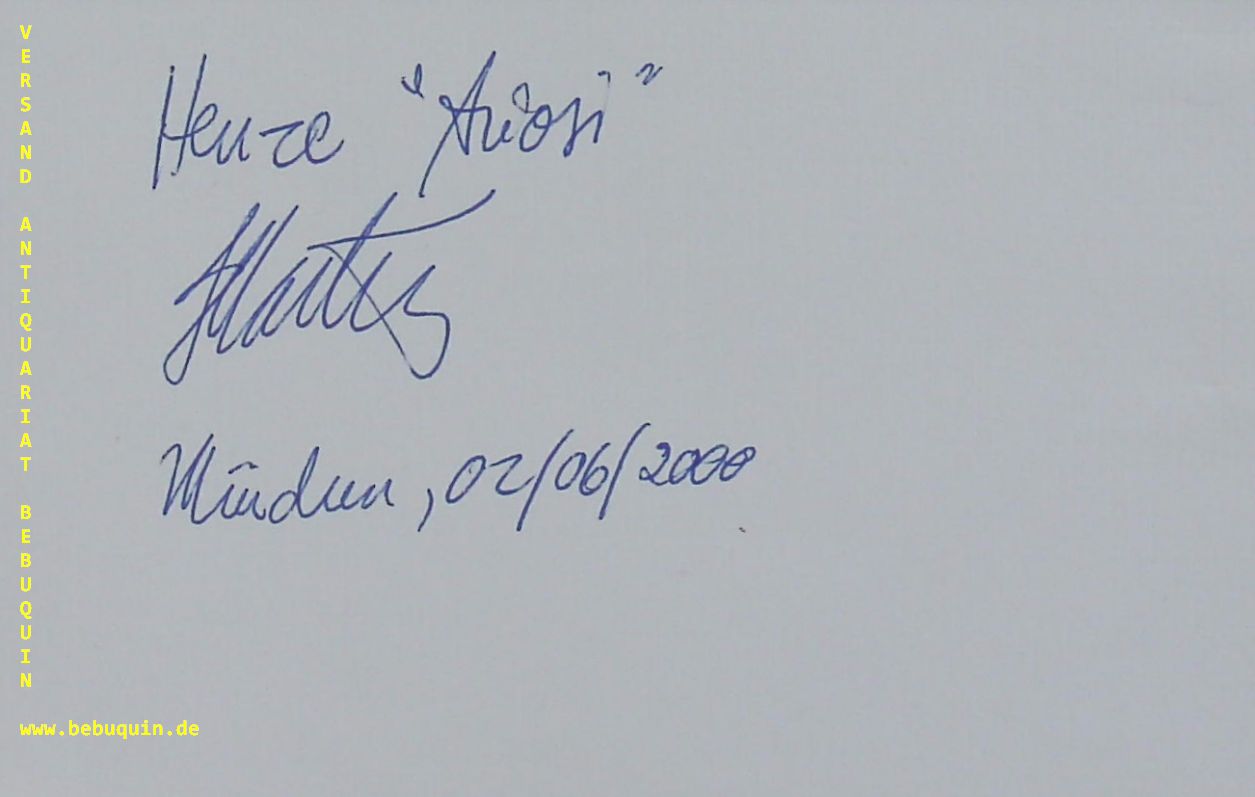 VERSAND ANTIQUARIAT BEBUQUIN
Henze "Ariosi"
München, 02/06/2000
www.bebuquin.de